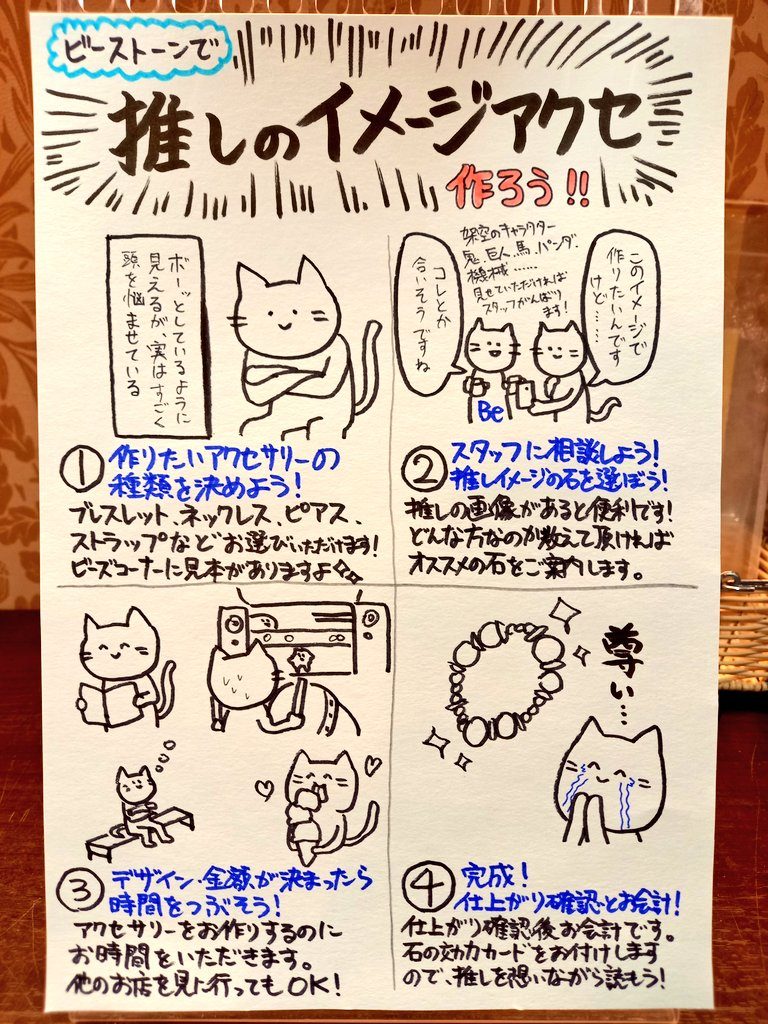 ビーストーンで
推しのイメージアクセ
作ろう!!
ボーッとしているように
見えるが、実はすごく
頭を悩ませている
①作りたいアクセサリーの
種類を決めよう!
ブレスレット、ネックレス、ピアス、
ストラップなどお選びいただけます!
ビーズコーナーに見本がありますよ
このイメージで
作りたいんです
けど……
架空のキャラクター
鬼、巨人、馬、パンダ、
機械……
見せていただければ
スタッフがんばり
ます!
コレとか
合いそうですね
Be
②スタッフに相談しよう!
推しイメージの石を選ぼう!
推しの画像があると便利です!
どんな方なのか教えて頂ければ
オススメの石をご案内します。
③デザイン・金額が決まったら
時間をつぶそう!
アクセサリーをお作りするのに
お時間をいただきます。
他のお店を見に行ってもOK!
尊い…
④完成!
仕上がり確認とお会計!
仕上がり確認後お会計です。
石の効力カードをお付けします
ので、推しを想いながら読もう!